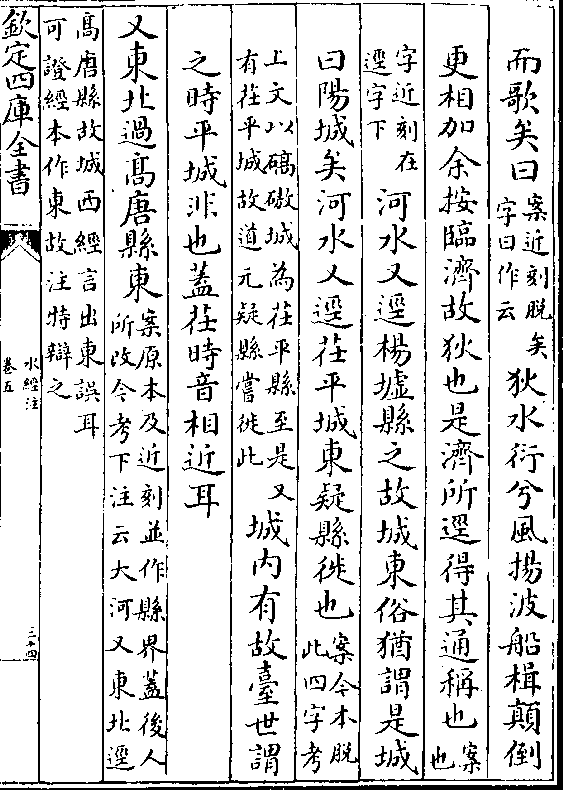 而歌矣曰案近刻脱矣字曰作云狄水衍兮風揚波船楫顛倒
更相加余按臨濟故狄也是濟所逕得其通稱也案也
字近刻在逕字下河水又逕楊墟縣之故城東俗猶謂是城
曰陽城矣河水又逕茌平城東疑縣徙也案今本脱此四字考
上文以碻磝城為茌平縣至是又有茌平城故道元疑縣嘗徙此城内有故臺世謂
之時平城非也蓋茌時音相近耳
又東北過髙唐縣東案原本及近刻並作縣界蓋後人所改今考下注云大河又東北逕
髙唐縣故城西經言出東誤耳可證經本作東故注特辯之
欽定四庫全書
水經注
卷五
三十四